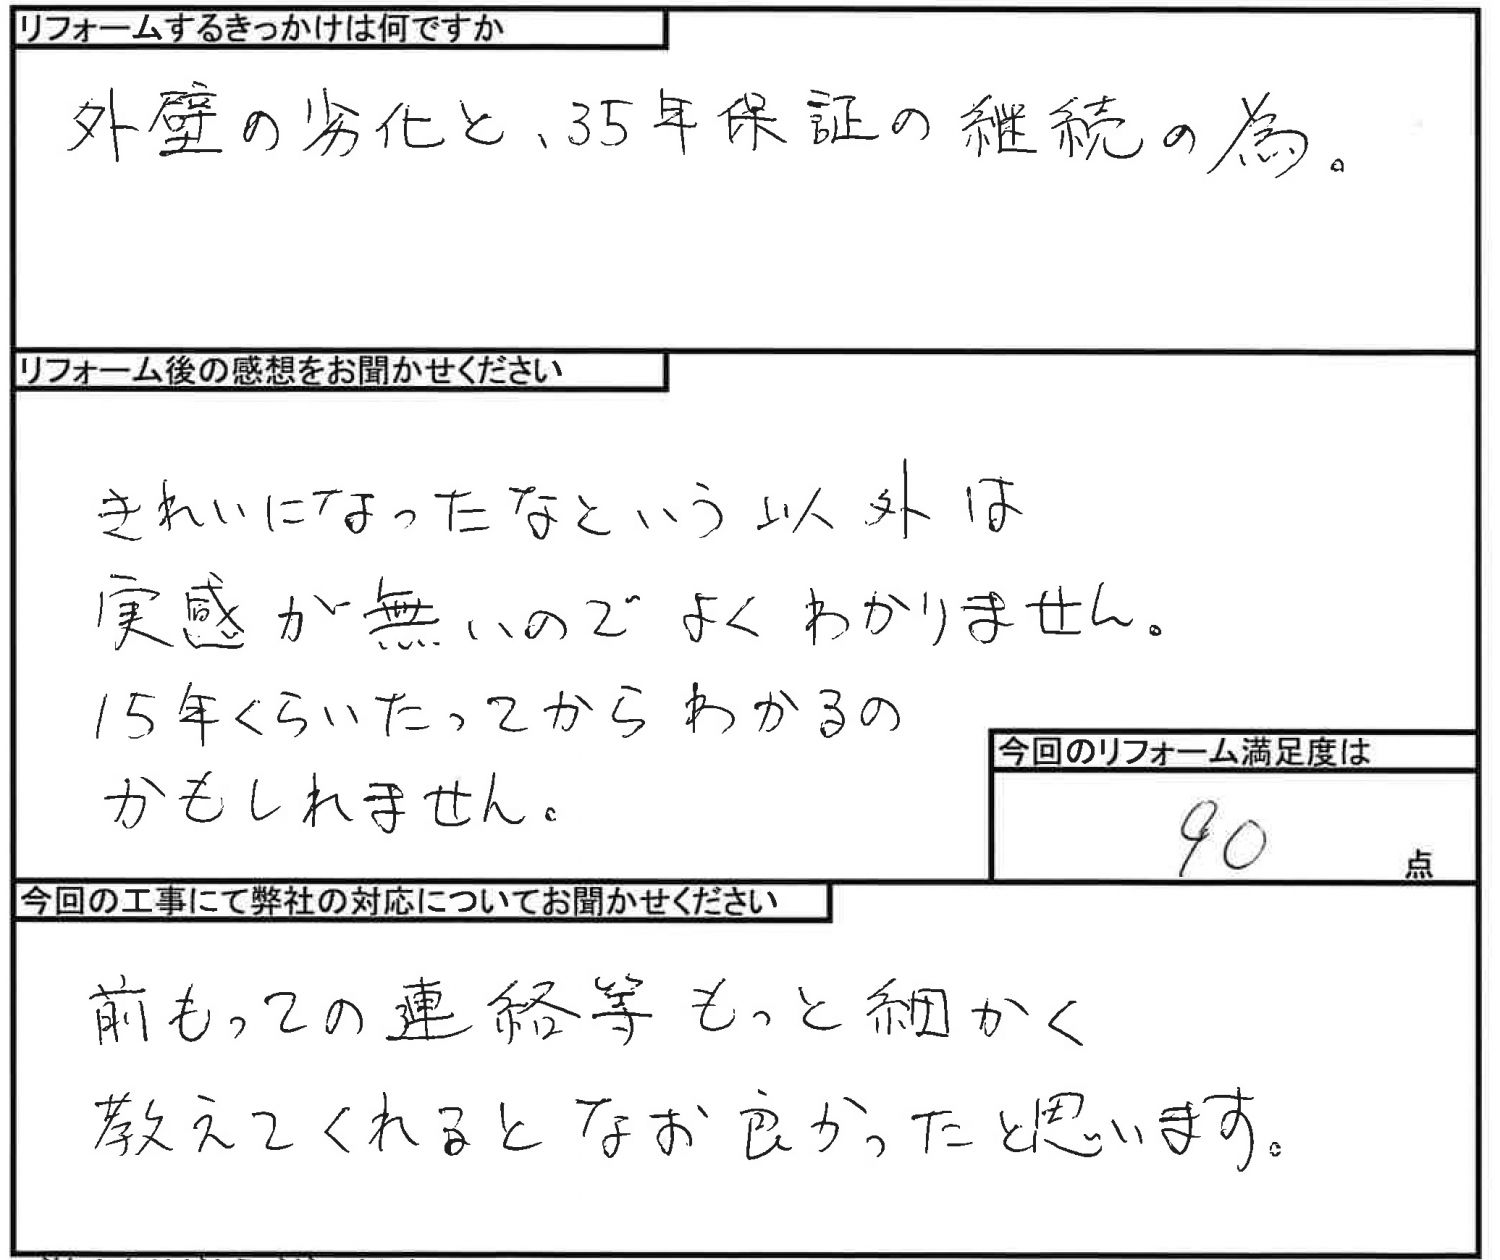 リフォームするきっかけは何ですか
外壁の劣化と、35年保証の継続の為。
リフォーム後の感想をお聞かせください
きれいになったなという以外は
実感が無いのでよくわかりません。
15年くらいたってからわかるの
かもしれません。
今回のリフォーム満足度は
90点
今回の工事にて弊社の対応についてお聞かせください
前もっての連絡等もっと細かく
教えてくれるとなお良かったと思います。